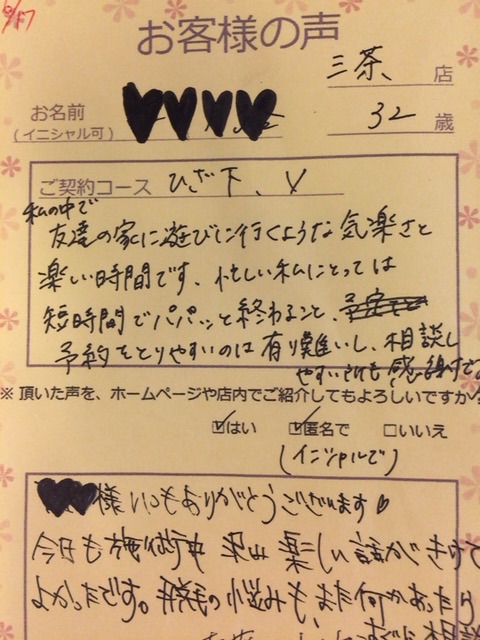 9/17
お客様の声
三茶、店
お名前
(イニシャル可)
32 歳
ご契約コース ひざ下、V
私の中で
友達の家に遊びに行くような気楽さと
楽しい時間です、忙しい私にとっては
短時間でパパッと終わること、
予約をとりやすいのは有り難いし、相談し
やすい所も感謝です。
※ 頂いた声を、ホームページや店内でご紹介してもよろしいですか
☑はい ☑匿名で □いいえ
(イニシャルで)
様いつもありがとうございます♡
今日も施術中 沢山 楽しい話ができて
よかったです。脱毛の悩みも、また何かあったら